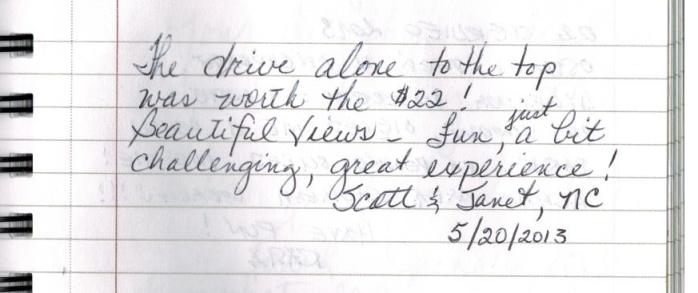 The drive alone to the top
was worth the $22!
Beautiful Views - fun, just a bit
challenging, great experience!
Scott & Janet, NC
5/20/2013